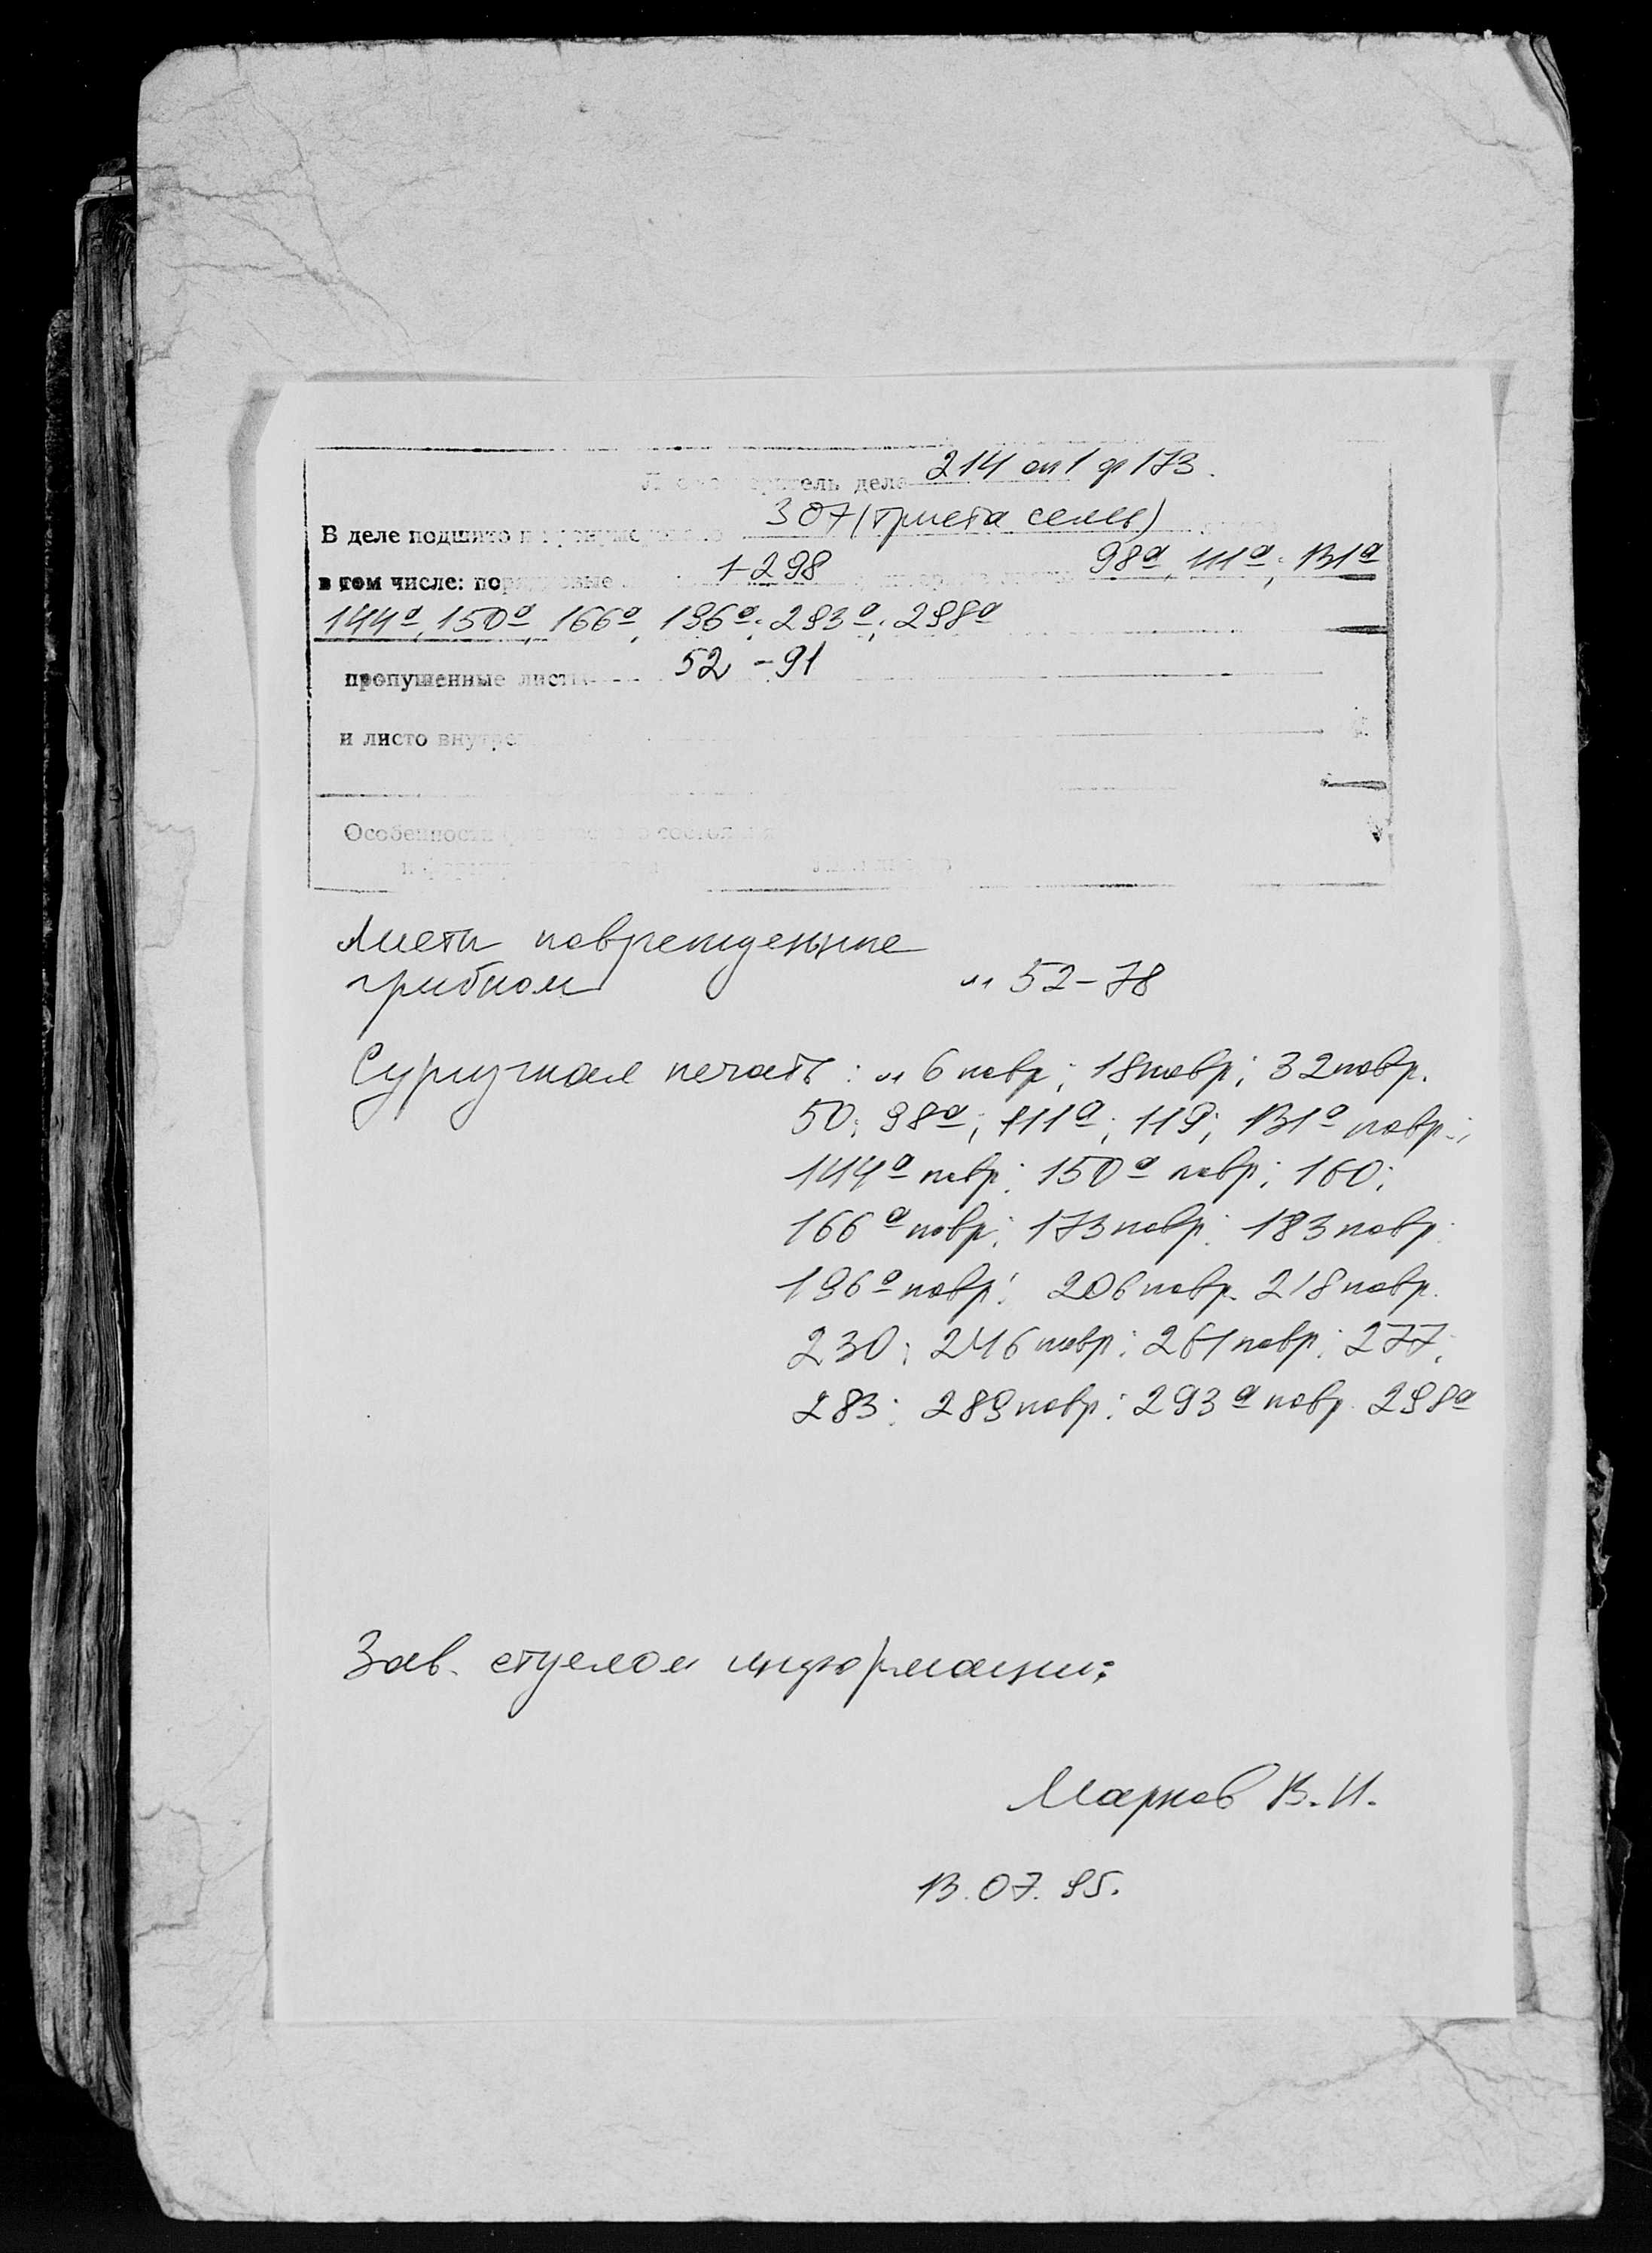 дела 214 оп 1 ф 173.
В деле подшито и пронумеровано 307 (триста семь)
в том числе: порядковые 1-298 98а, 111а; 131а
144а, 150а, 166а, 196а; 293а; 298а
пропущенные листы 52-91
и листо внутрен
Особенности состояния
Листы поврежденные
грибком лл 52-78
Сургучная печать: л 6 повр; 18 повр; 32 повр.
50; 98а; 111а; 119; 131а повр.;
144а повр; 150а повр; 160;
166а повр; 173 повр; 183 повр
196а повр; 206 повр. 218 повр.
230; 246 повр; 261 повр; 277;
283; 289 повр; 293а повр. 298а
Зав. отделом информации:
Марков В.И.
13.07.95.